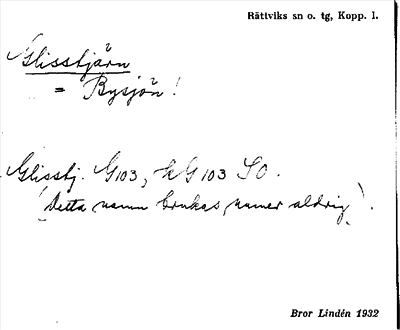 Rättviks sn o. tg, Kopp. l.
Glisstjärn
= Bysjön!
Glisstj. G103, kG103 SO.
(Detta namn brukas numer aldrig).
Bror Lindén 1932